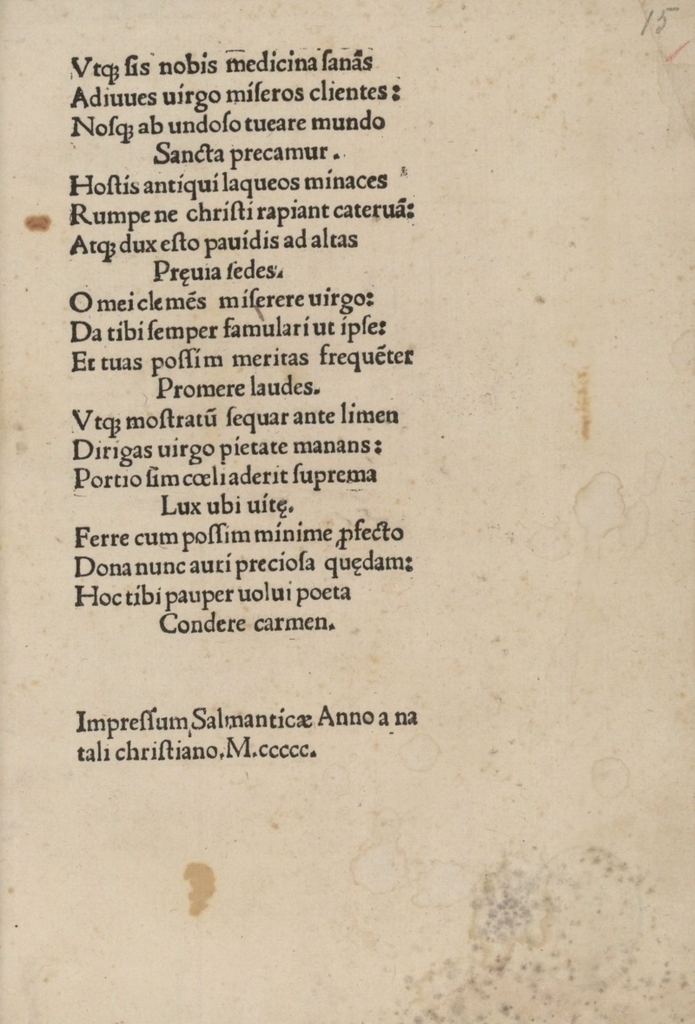 15
Vtqꝫ ſis nobis medicina ſanãs
Adiuues uirgo miſeros clientes:
Noſqꝫ ab undoſo tueare mundo
Sancta precamur.
Hoſtis antiqui laqueos minaces
Rumpe ne chriſti rapiant cateruã:
Atqꝫ dux eſto pauidis ad altas
Pręuia ſedes.
O mei clemẽs miſerere uirgo:
Da tibi ſemper famulari ut ipſe:
Et tuas poſſim meritas frequẽter
Promere laudes.
Vtqꝫ moſtratũ ſequar ante limen
Dirigas uirgo pietate manans:
Portio ſim cœli aderit ſuprema
Lux ubi uitę.
Ferre cum poſſim minime ꝓfecto
Dona nunc auri precioſa quędam:
Hoc tibi pauper uolui poeta
Condere carmen.
Impreſſum Salmanticæ Anno a na
tali chriſtiano.M.ccccc.